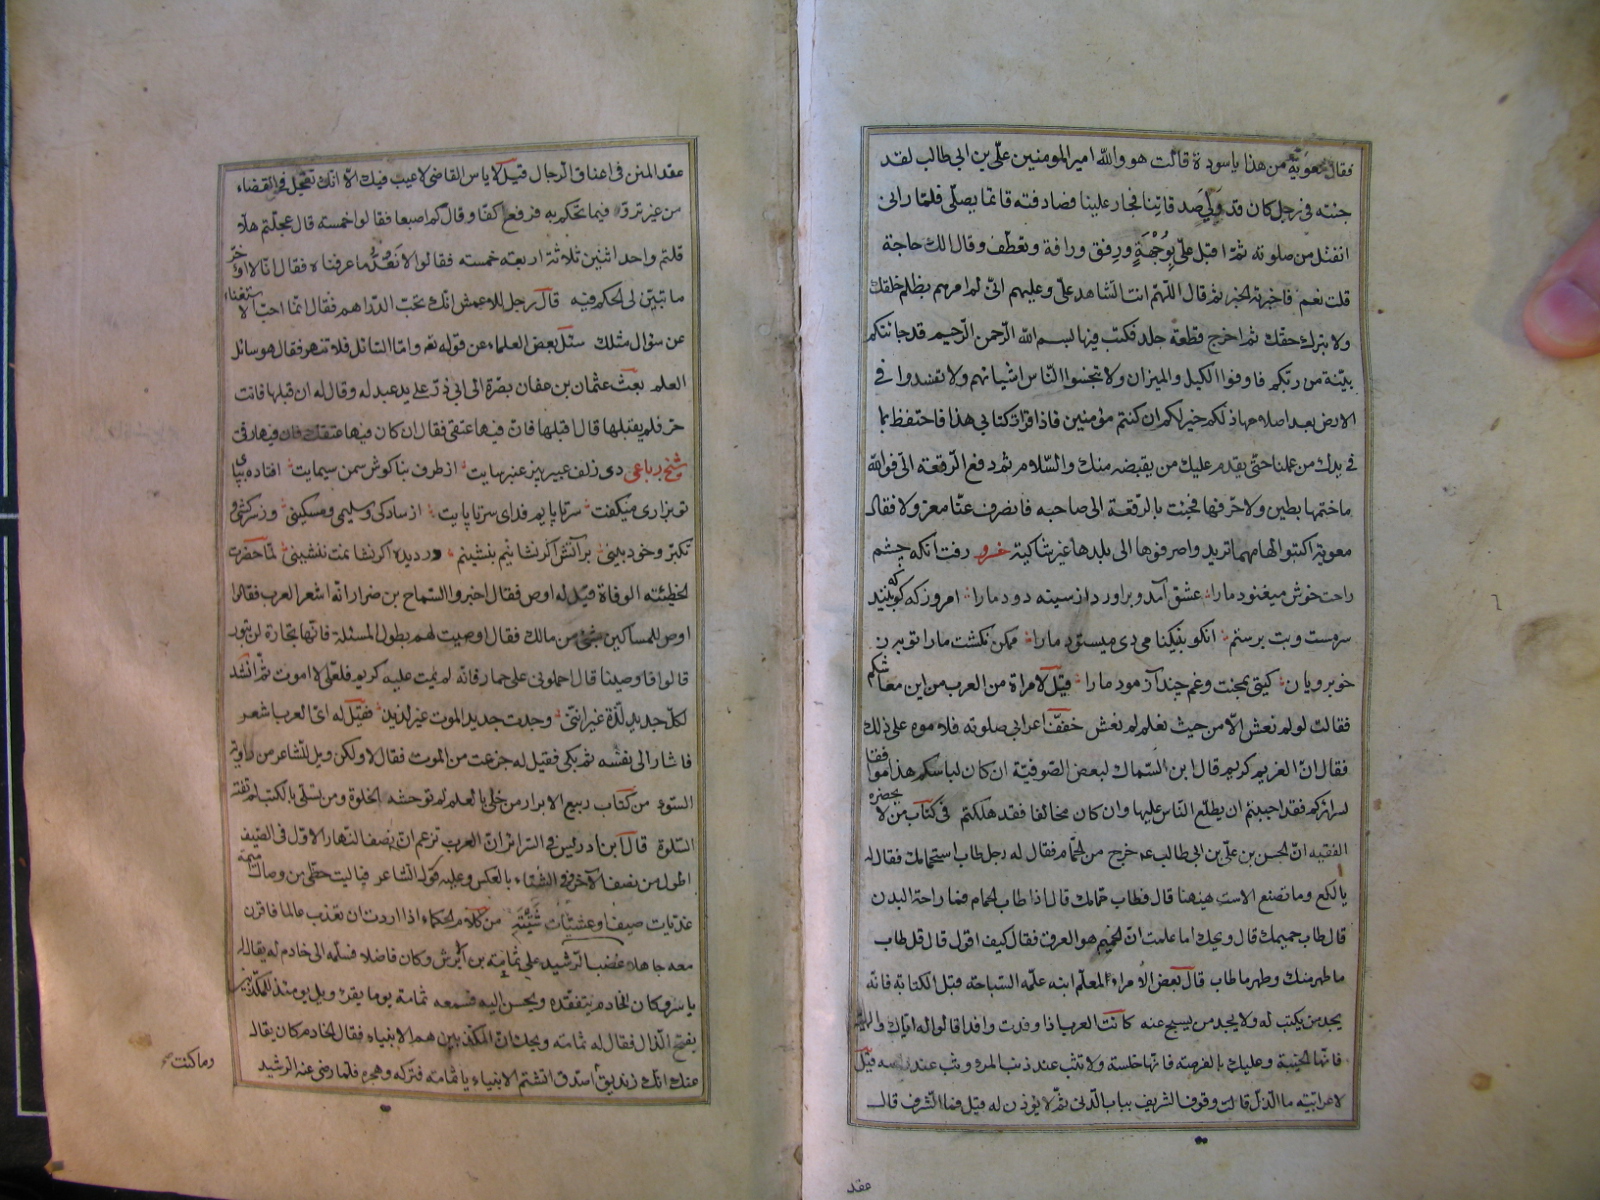 فقال معوية من هذا يا سودة قالت هو والله امير المومنين علي بن ابي طالب لقد
جئته في رجل كان قد ولي صدقاتنا فجار علينا فصادفته قائما يصلي فلما راني
انفتل من صلوته ثم اقبل علي بوجهة ورفق ورافة وتعطف وقال الك حاجة
قلت نعم فاخبرته الخبر ثم قال اللهم انت الشاهد علي وعليهم اني لم امرهم بظلم خلقك
ولا بترك حقك ثم اخرج قطعة جلد فكتب فيها بسم الله الرحمن الرحيم قد جائتكم
بينة من ربكم فاوفوا الكيل والميزان ولا تبخسوا الناس اشيائهم ولا تفسدوا في
الارض بعد اصلاحها ذلكم خير لكم ان كنتم مؤمنين فاذا قرات كتابي هذا فاحتفظ بما
في يدك من عملنا حتى يقدم عليك من يقبضه منك والسلام ثم دفع الرقعة الي فوالله
ما ختمها بطين ولا خزمها فجئت بالرقعة الى صاحبه فانصرف عنا معزولا فقال
معوية اكتبوا لها مهما تريد واصرفوها الى بلدها غير شاكية رفت آنكه چشم
راحت خوش ميغنود مارا عشق آمد وبراورد از سينه دود مارا امروز كه كو بلند
سرمست وبت پرستم آنكو بنيكنامي دي ميستود مارا ممكن نكشت مارا توبه ز
خوبرويان كيتي بمحنت وغم چند آزمود مارا قيل لامراة من العرب من اين معاشكم
فقالت لو لم نعش الا من حيث نعلم لم نعش خفف اعرابي صلوته فلاموه على ذلك
فقال ان الغريم كريم قال ابن السماك لبعض الصوفية ان كان لباسكم هذا موافقا
لسرائركم فقد احببتم ان يطلع الناس عليها وان كان مخالفا فقد هلكتم في كتاب من لا يحضره
الفقيه ان الحسن بن علي بن ابي طالب ع خرج من الحمام فقال له رجل طاب استحمامك فقال له
يا لكع وما تصنع الاست هيهنا قال فطاب حمامك قال اذا طاب الحمام فما راحة البدن
قال طاب حميمك قال ويحك اما علمت ان الحميم هو العرق فقال كيف اقول قال قل طاب
ما طهر منك وطهر ما طاب قال بعض الامراء لمعلم ابنه علمه السباحة قبل الكتابة فانه
يجد من يكتب له ولا يجد من يسبح عنه كانت العرب اذا وفدت وافدا قالوا له اياك والهيبة
فانها الخيبة وعليك بالفرصة فانها خلسة ولا تثب عند ذنب الامر وثب عند راسه قيل
لاعرابية ما الذل قالت وقوف الشريف بباب الدني ثم لا يؤذن له قيل فما الشرف قال
عقد
عقد المنن في اعناق الرجال قيل لاياس القاضي لا عيب فيك الا انك تعجل في القضاء
من غير ترو فيما تحكم به فرفع كفا وقال كم اصبعا فقالوا خمسة قال عجلتم هلا
قلتم واحد اثنين ثلاثة اربعة خمسة فقالوا لا نعد ما عرفناه فقال انا لا اؤخر
ما تبين لي الحكم فيه قال رجل للاعمش انك تحب الدراهم فقال انما احب الاستغناء
عن سؤال مثلك سئل بعض العلماء عن قوله تعـ واما السائل فلا تنهر فقال هو سائل
العلم بعث عثمان بن عفان بصرة الى ابي ذر على يد عبد له وقال له ان قبلها فانت
حر فلم يقبلها قال اقبلها فان فيها عتقي فقال ان كان فيها عتقك فان فيها رقي
شيخ رباعي دي زلف عبير بيز عنبر سايت از طرف بناكوش سمن سيمايت افتاده بپاي
تو بزاري ميكفت سرتا پايم فداي سرتا پايت از سادكي وسليمي ومسكيني وزسركشي و
تكبر وخود بيني بر آتش اكر نشانيم بنشينم ور ديده اكر نشانمت ننشيني لما حضرت
الحطيئة الوفاة قيل له اوص فقال اخبروا الشماخ بن ضرار انه اشعر العرب فقالوا
اوص للمساكين بشئ من مالك فقال اوصيت لهم بطول المسئلة فانها تجارة لن تبور
قالوا فاوصينا قال احملوني على حمار فانه لم يمت عليه كريم فلعلي لا اموت ثم انشد
لكل جديد لذة غير انني وجدت جديد الموت غير لذيذ فقيل له اي العرب اشعر
فاشار الى نفسه ثم بكى فقيل له جزعت من الموت فقال لا ولكن ويل للشاعر من راوية
السوء من كتاب ربيع الابرار من خلى بالعلم لم توحشه الخلوة ومن تسلى بالكتب لم تفته
السلوة قال ابن ادريس في السرائر ان العرب تزعم ان نصف النهار الاول في الصيف
اطول من نصف الاخر وفي الشتاء بالعكس وعليه قول الشاعر فياليت حظي من وصالك
غديات صيف او عشيات شتية من كلام الحكماء اذا اردت ان تعذب عالما فاقرن
معه جاهلا غضب الرشيد على ثمامة بن اشرس وكان فاضلا فسلمه الى خادم له يقال له
ياسر وكان الخادم يتفقده ويحسن اليه فسمعه ثمامة يوما يقرء ويل يومئذ للمكذبين
بفتح الذال فقال له ثمامة ويحك ان المكذبين هم الانبياء فقال الخادم كان يقال
عنك انك زنديق اصدق اتشتم الانبياء يا ثمامة فتركه وهجره فلما رضي عنه الرشيد
وما كنت